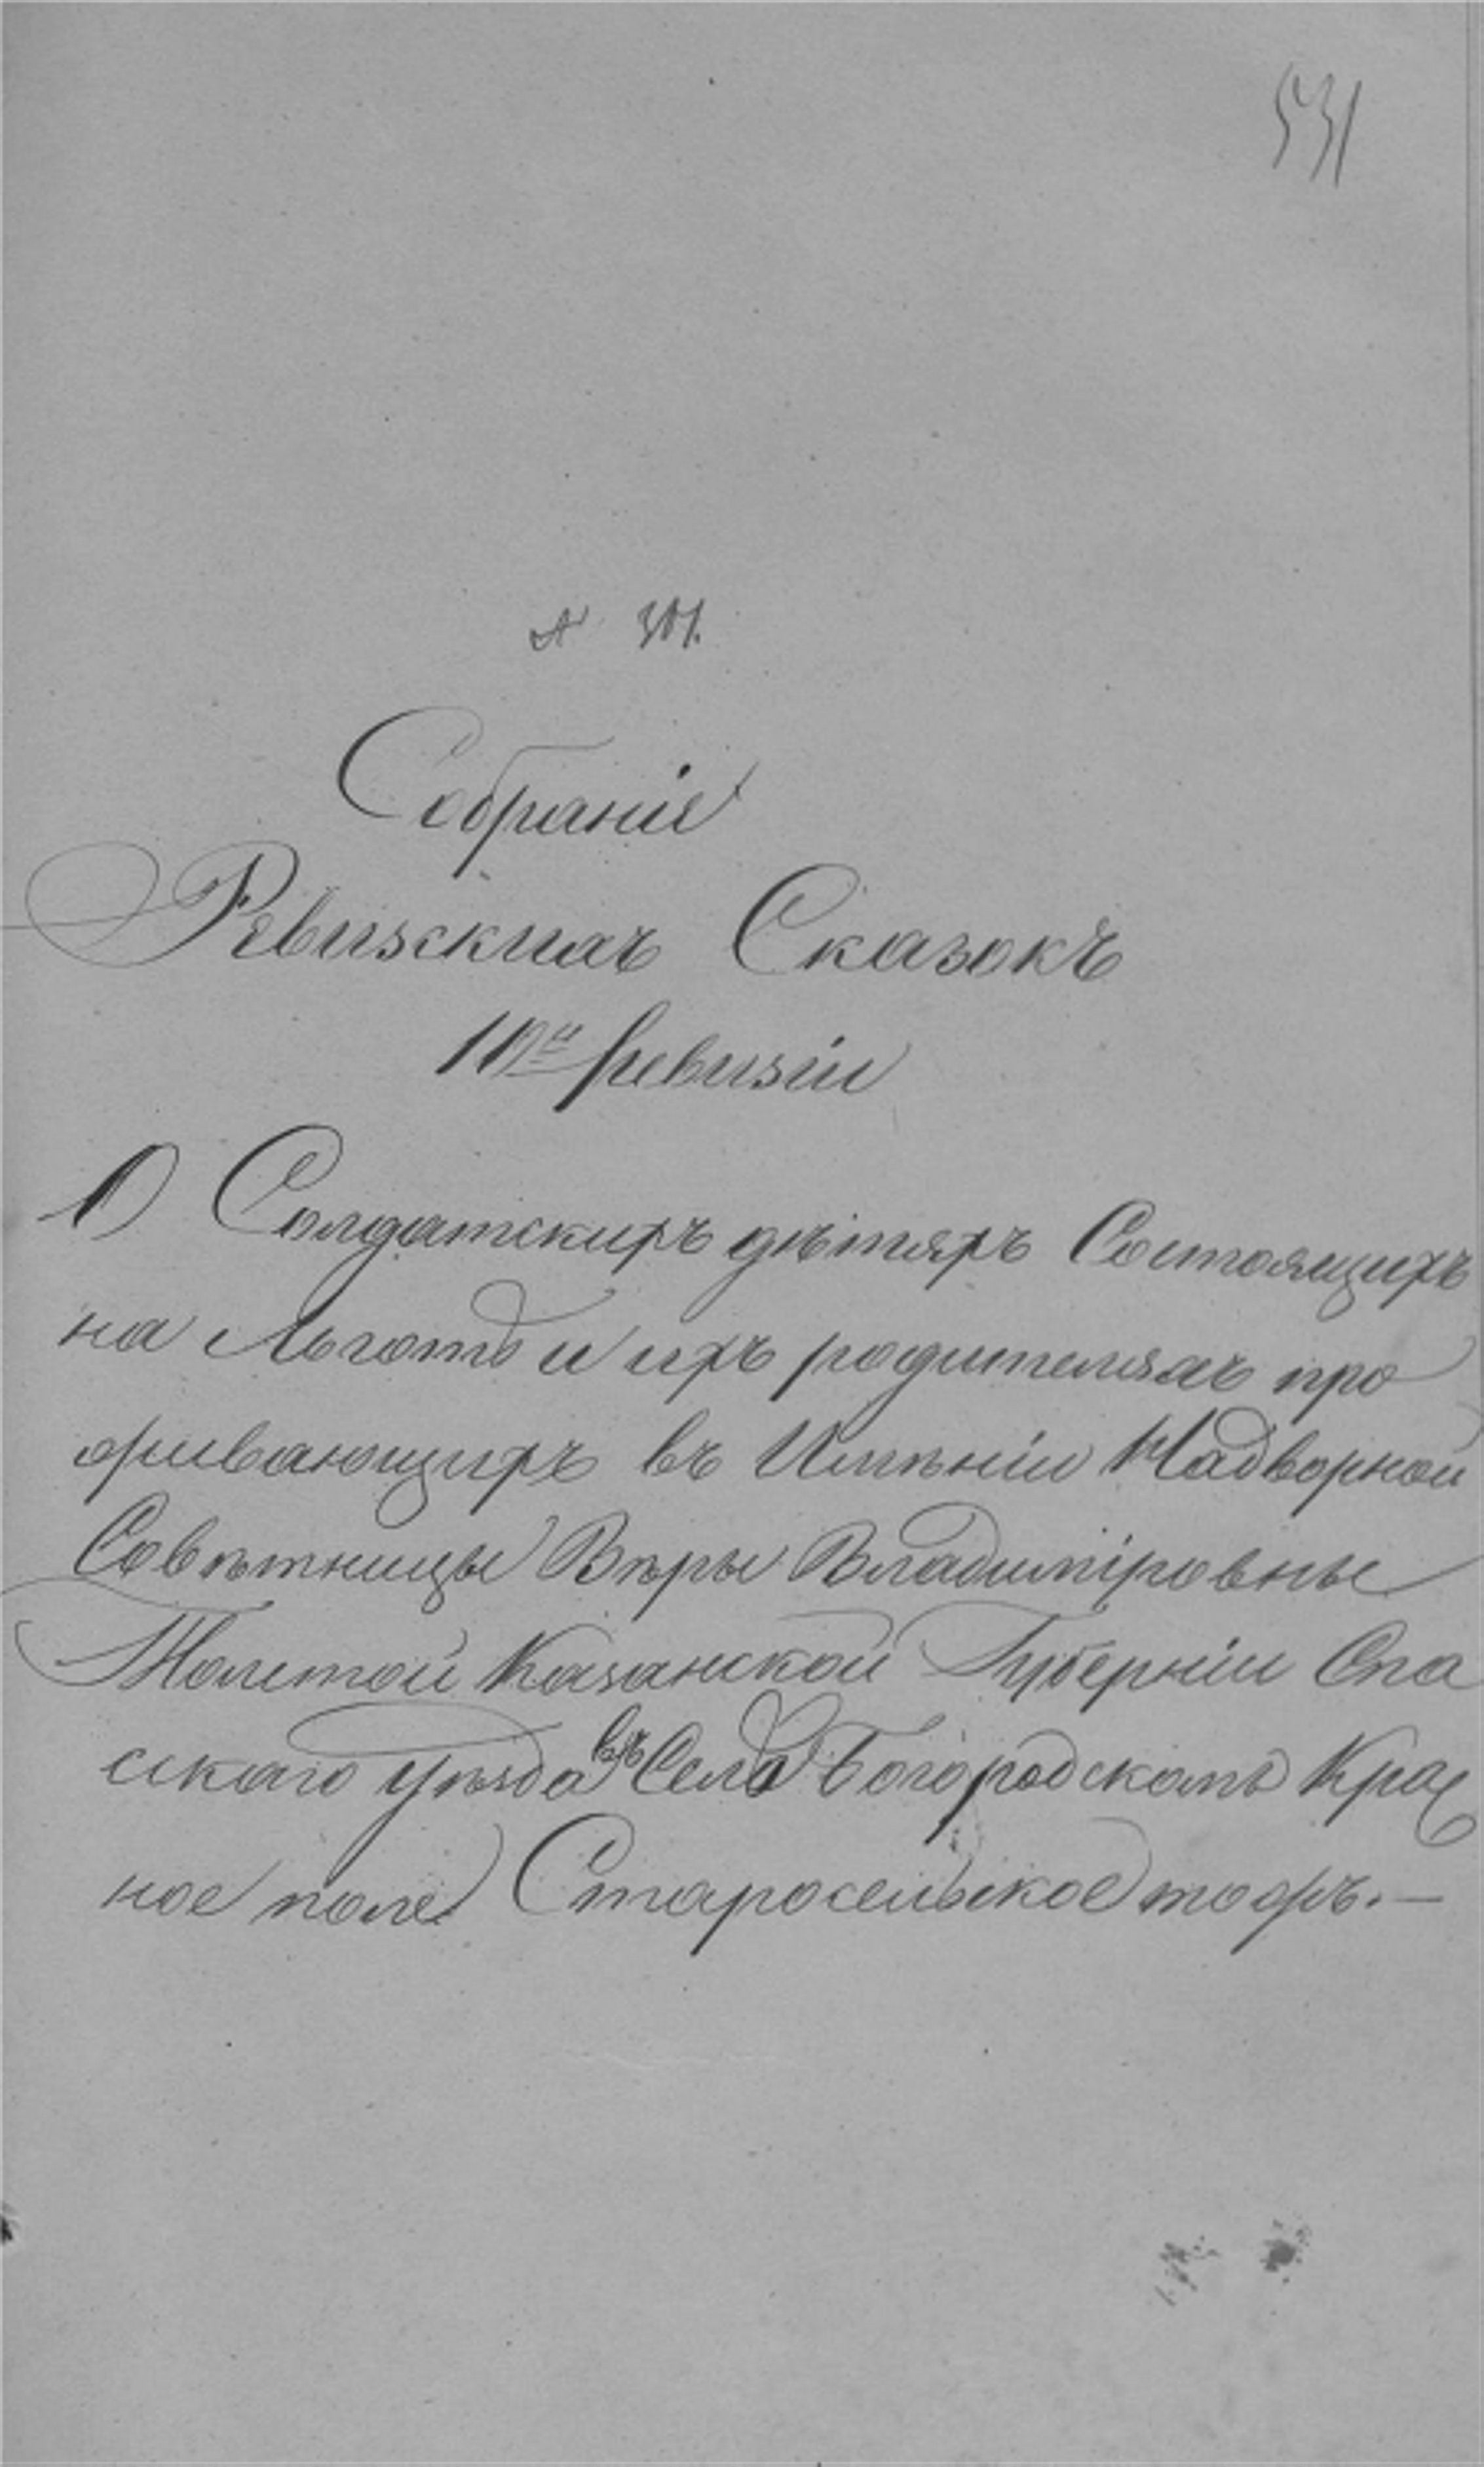 531
№ 301.
Собранiе
Ревизскихъ Сказокъ
10й ревизiи
О Солдатскихъ дѣтяхъ Состоящихъ
на Льготѣ и ихъ родителяхъ про
живающихъ въ Имѣнiи Надворной
Совѣтницы Вѣры Владимiровны
Толстой Казанской Губернiи Спа
скаго уѣзда въ Селѣ Богородскомъ Крас
ное поле Старосельское тожъ.—